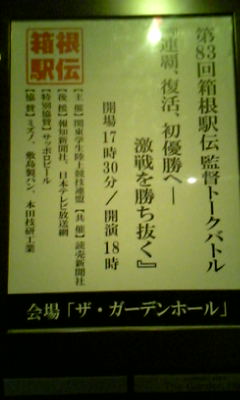 第83回箱根駅伝監督トークバトル
『連覇、復活、初優勝へ―
激戦を勝ち抜く』
開場17時30分/開演18時
箱根
駅伝
【主催】関東学生陸上競技連盟【共催】読売新聞社
【後援】報知新聞社、日本テレビ放送網
【特別協賛】サッポロビール
【協賛】ミズノ、敷島製パン、本田技研工業
会場「ザ・ガーデンホール」